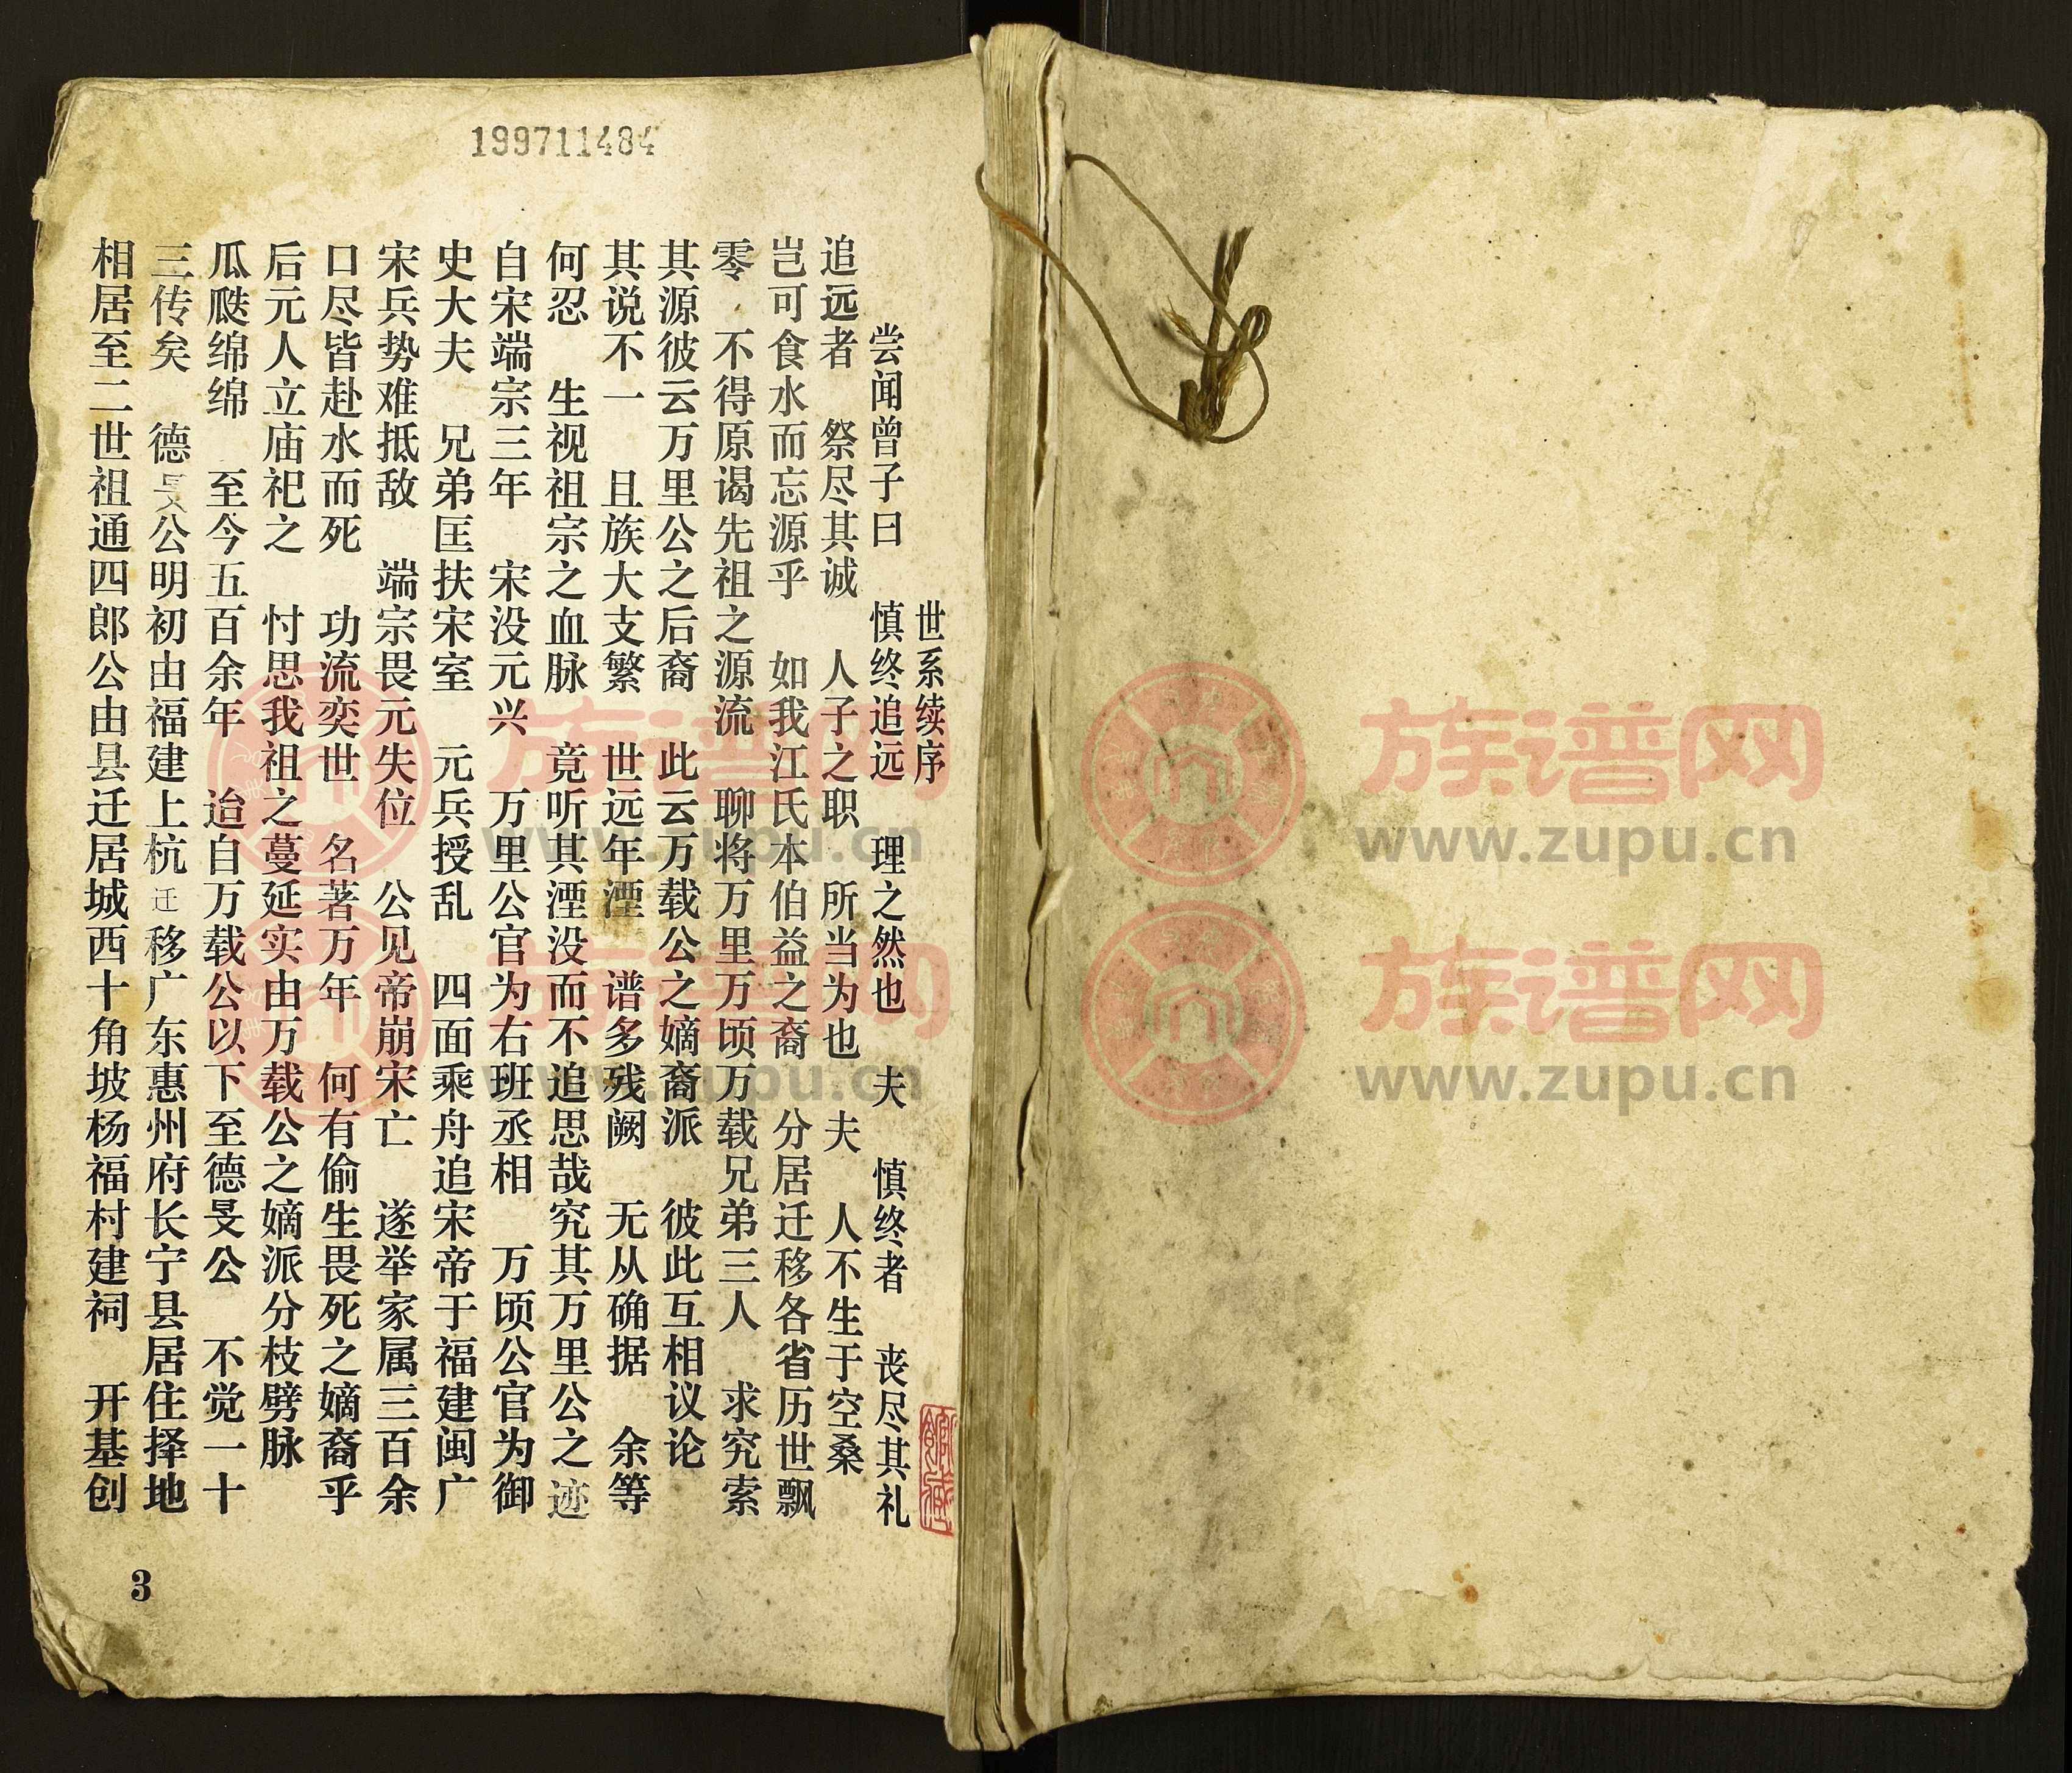 199711484
世系续序
尝闻曾子曰 慎终追远 理之然也 夫 慎终者 丧尽其礼
追远者 祭尽其诚 人子之职 所当为也 夫 人不生于空桑
岂可食水而忘源乎 如我江氏本伯益之裔 分居迁移各省历世飘
零 不得原谒先祖之源流 聊将万里万顷万载兄弟三人 求究索
其源彼云万里公之后裔 此云万载公之嫡裔派 彼此互相议论
其说不一 且族大支繁 世远年湮 谱多残阙 无从确据 余等
何忍 生视祖宗之血脉 竟听其湮没而不追思哉究其万里公之迹
自宋端宗三年 宋没元兴 万里公官为右班丞相 万顷公官为御
史大夫 兄弟匡扶宋室 元兵授乱 四面乘舟追宋帝于福建闽广
宋兵势难抵敌 端宗畏元失位 公见帝崩宋亡 遂举家属三百余
口尽皆赴水而死 功流奕世 名著万年 何有偷生畏死之嫡裔乎
后元人立庙祀之 忖思我祖之蔓延实由万载公之嫡派分枝劈脉
瓜瓞绵绵 至今五百余年 迨自万载公以下至德旻公 不觉一十
三传矣 德旻公明初由福建上杭迁移广东惠州府长宁县居住择地
相居至二世祖通四郎公由县迁居城西十角坡杨福村建祠 开基创
3
族谱网
www.zupu.cn
族谱网
www.zupu.cn
族谱网
www.zupu.cn
族谱网
www.zupu.cn